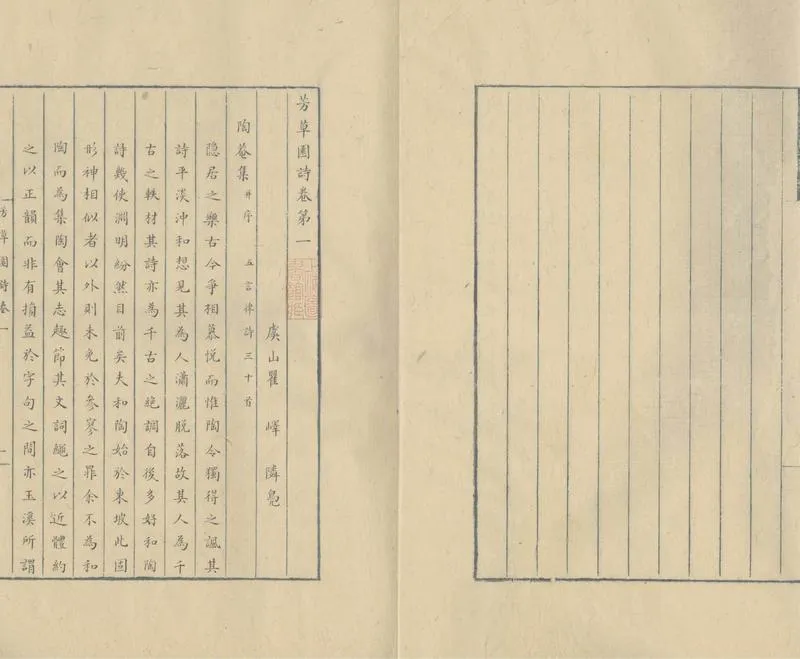 芳草園詩卷第一
虞山瞿 嶧 隣鳧
陶菴集 并序 五言律詩三十首
隱居之樂古今爭相慕悅而惟陶令獨得之諷其
詩平淡沖和想見其為人瀟灑脫落故其人為千
古之軼材其詩亦為千古之絶調自後多好和陶
詩幾使淵明紛然目前矣夫和陶始於東坡此固
形神相似者以外則未免於參寥之罪余不為和
陶而為集陶會其志趣節其文詞繩之以近體約
之以正韻而非有損益於字句之間亦玉溪所謂
芳草園詩卷一
一